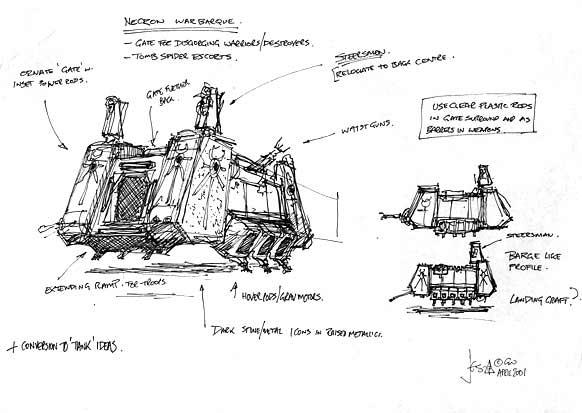 NECRON WARBARQUE.
- GATE FOR DISGORGING WARRIORS/DESTROYERS.
- TOMB SPIDER ESCORTS.
STEERSMAN.
RELOCATE TO BACK CENTRE.
ORNATE 'GATE' W.
INSET POWER RODS.
GATE FURTHER
BACK.
USE CLEAR PLASTIC RODS
IN GATE SURROUND AND AS
BARRELS IN WEAPONS.
WAIST GUNS.
STEERSMAN.
BARGE LIKE
PROFILE.
LANDING CRAFT?
EXTENDING RAMP. FOR TROOPS
HOVER PODS/GRAV MOTORS.
DARK STONE/METAL ICONS IN RAISED METALLICS.
+ CONVERSION TO 'TANK' IDEAS.
© GW
APRIL 2001